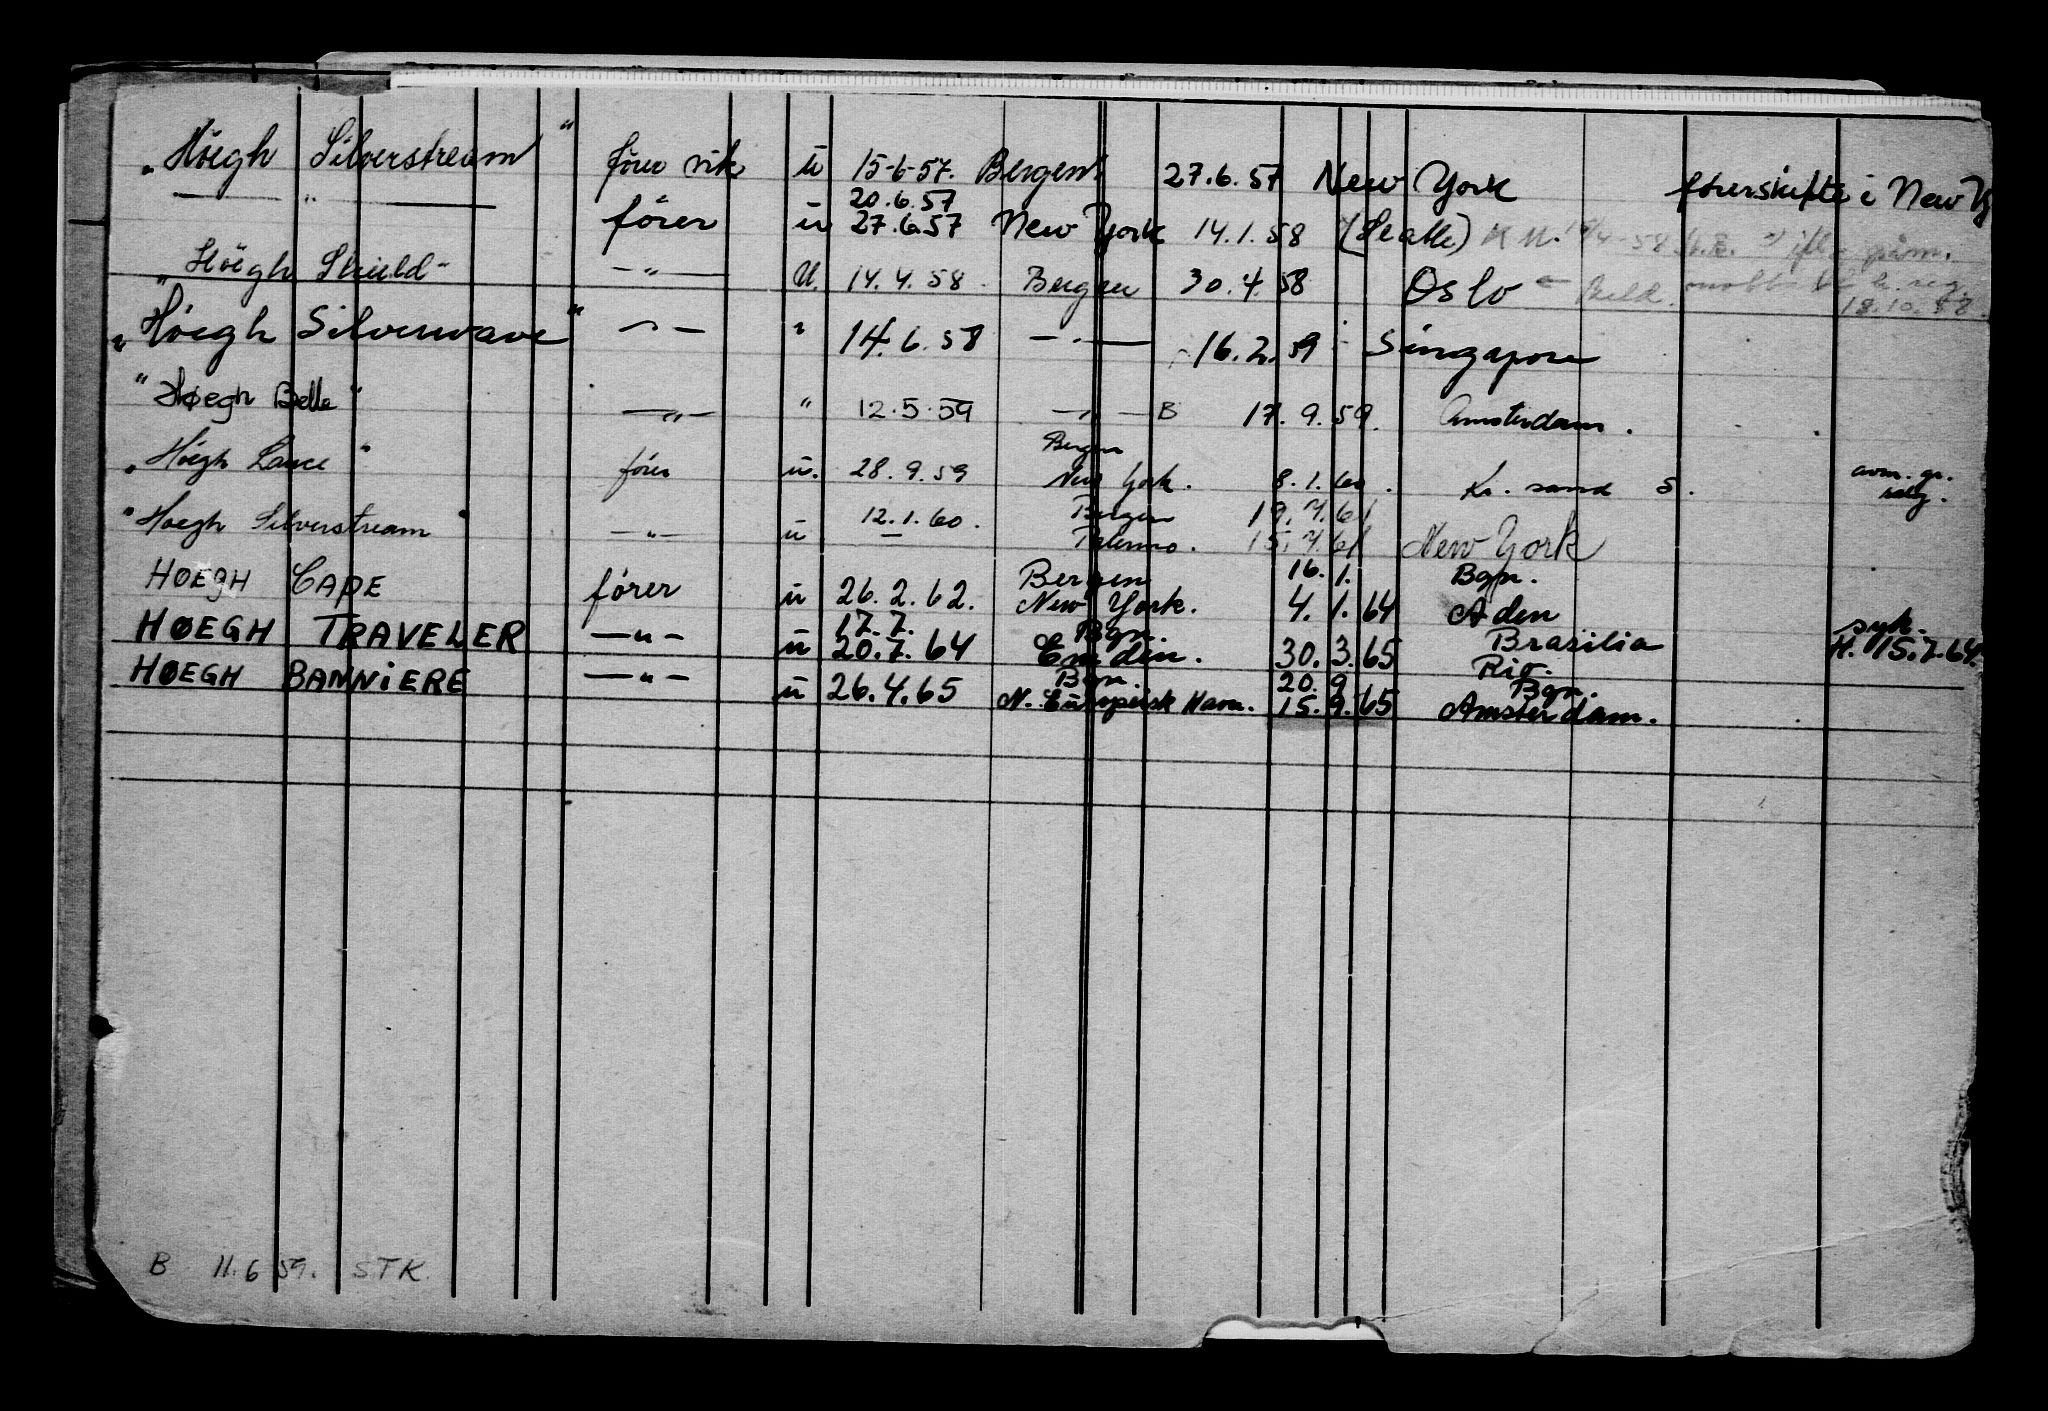 "Høegh Silverstream" fører vik ū 15-6-57. Bergen 27.6.57 New York førerskifte i New Y
— " — 20.6.57
fører ū 27.6.57 New York 14.1.58 (Seatle)
"Høegh Shield" — " — U. 14.4.58. Bergen 30.4.58 Oslo
18.10.58.
"Høegh Silverwave" — " — " 14.6.58 — " — 16.2.59 Singapore
"Høegh Belle" — " — " 12.5.59 — " — B 17.9.59. Amsterdam.
Bergen
"Høegh Lance" fører ū. 28.9.59 New York. 8.1.60. Kr. sand S. avm. gr.
12.1.60. Bergen 19.7.61
"Høegh Silverstream" — " — ū — Palermo. 15.7.61 New York
Bergen 16.1. Bgn.
HØEGH CAPE fører ū 26.2.62. New York. 4.1.64 Aden
17.7. Bgn. Brasilia syk.
HØEGH TRAVELER — " — ū 20.7.64 Emden. 30.3.65 Rio. H. 15.7.64.
Bgn. 20.9 Bgn.
HØEGH BANNIERE — " — ū 26.4.65 N. Europeisk Havn. 15.9.65 Amsterdam.
B 11.6.59. STK.